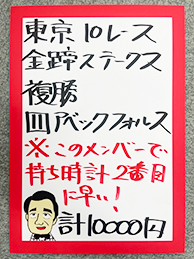 東京10レース
金蹄ステークス
複勝
皿アベックフォルス
※このメンバーで、
持ち時計2番目
に早い!
計10000円